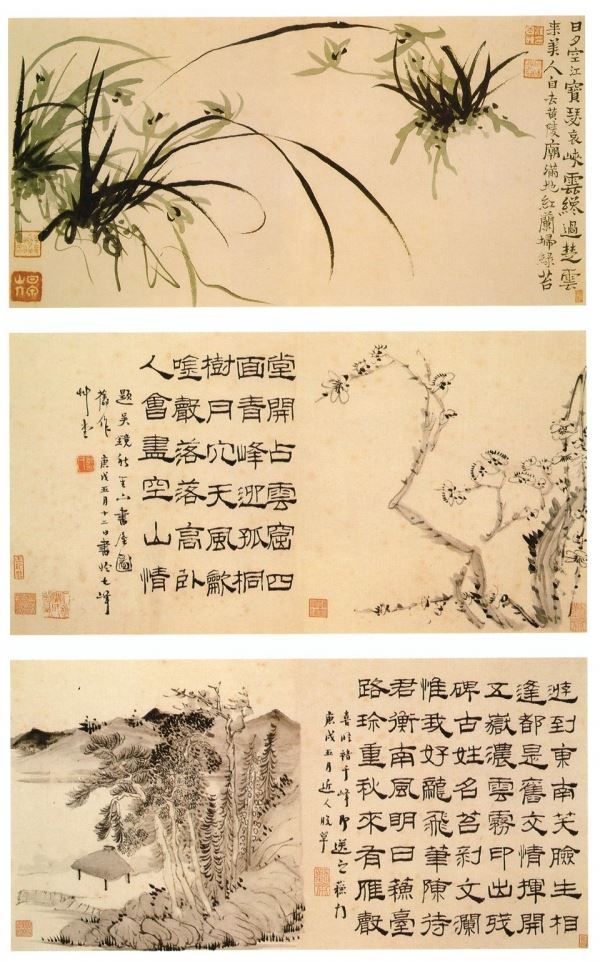 日夕空江寶瑟哀峽雲纔過楚雲
來美人自去黃陵廟滿地紅蘭掃綠苔
堂開占雲窟四
面青峰迎孤桐
樹月穴天風
唫聲落落高臥
人會盡空山情
題吳鏡秋山書屋圖
舊作 庚戌五月十二日書於七峰
艸堂
遊到東南笑臉生相
逢都是舊交情揮開
五嶽濃雲霧印出殘
碑古姓名苔剥文瀾
惟我好龍飛筆陳待
君衡南風明日蘇臺
路珍重秋來有雁聲
喜晤褚千峰即送之蘇州
庚戌五月近人脫草